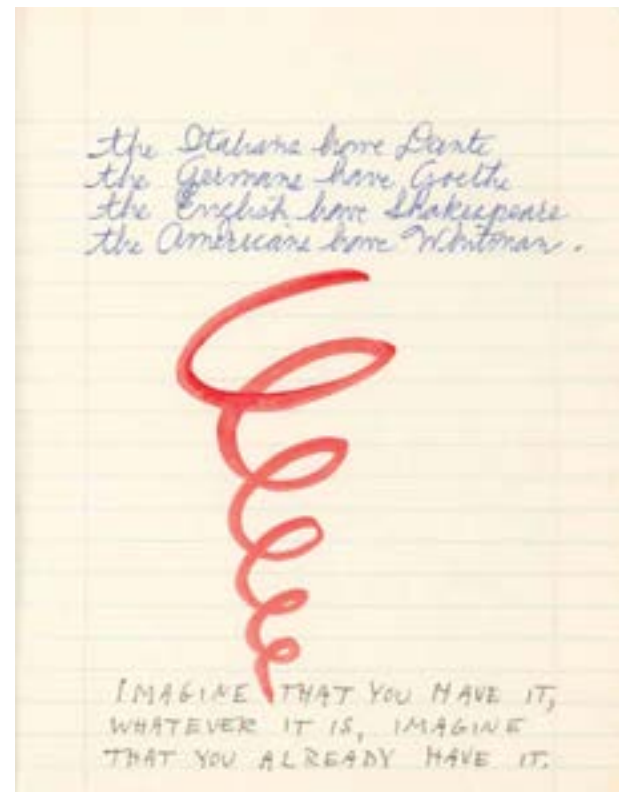 the Italians have Dante
the Germans have Goethe
the English have Shakespeare
the Americans have Whitman.
IMAGINE THAT YOU HAVE IT,
WHATEVER IT IS, IMAGINE
THAT YOU ALREADY HAVE IT.